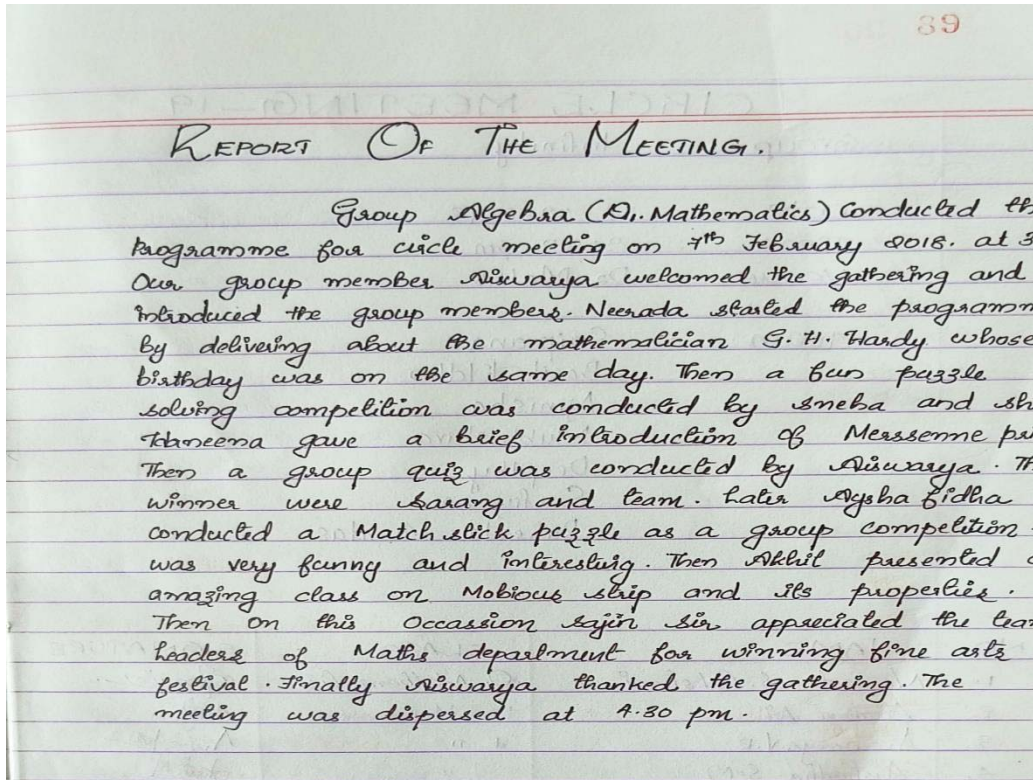 89
REPORT OF THE MEETING.
Group Algebra (D1. Mathematics) Conducted th
Programme for circle meeting on 7th February 2018. at 3
Our group member Aiswarya welcomed the gathering and
introduced the group members. Neerada started the programm
by delivering about the mathematician G. H. Hardy whose
birthday was on the same day. Then a fun puzzle
solving competition was conducted by Sneha and sh
Thaneena gave a brief introduction of Merssenne pr
Then a group quiz was conducted by Aiswarya. Th
winner were Sarang and team. Later Aysha Fidha
conducted a Match stick puzzle as a group competition
was very funny and interesting. Then Akhil presented a
amazing class on Mobious strip and its properties.
Then on this Occassion Sajin Sir appreciated the tea
leaders of Maths department for winning fine arts
festival. Finally Aiswarya thanked the gathering. The
meeting was dispersed at 4.30 pm.